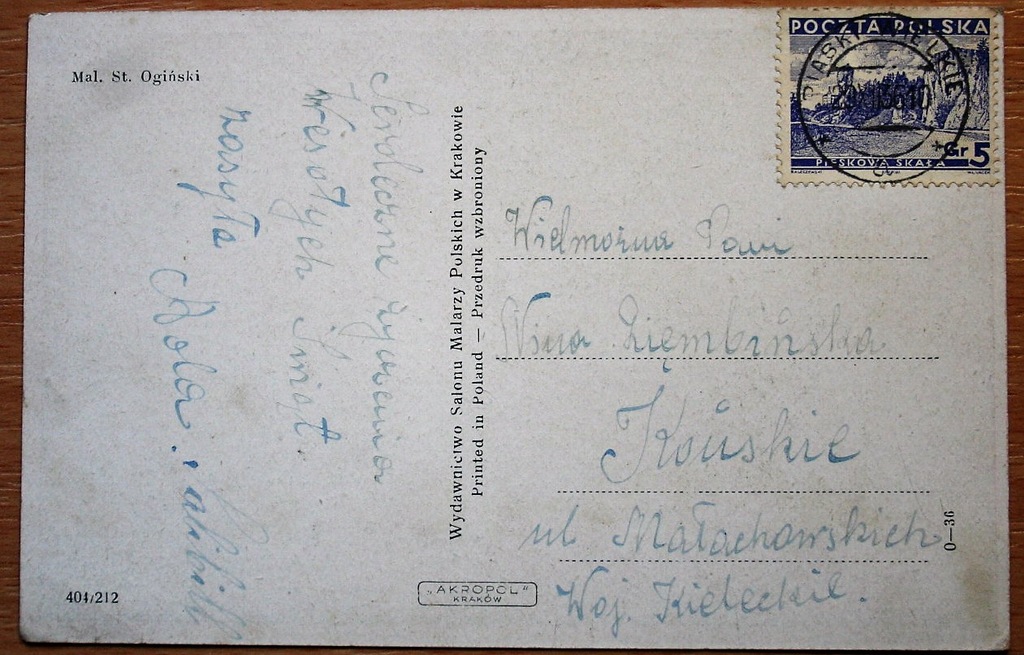 Mal. St. Ogiński
Serdeczne życzenia
Wesołych Świąt
zasyła
Wydawnictwo Salonu Malarzy Polskich w Krakowie
Printed in Poland — Przedruk wzbroniony
POCZTA POLSKA
PIASKI WIELKIE
Gr 5
PIESKOWA SKAŁA
Wielmożna Pani
Nina Ziembińska
Końskie
ul Małachowskich
Woj. Kieleckie.
0—36
404/212
"AKROPOL"
KRAKÓW